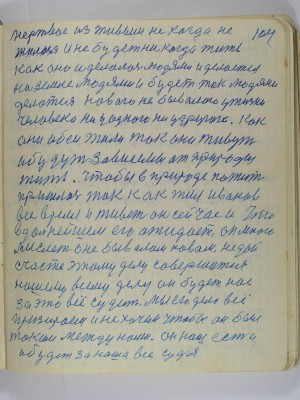 мертвое из живым не когда не 107
жилося и не будет никогда жить
как оно и делалося людями и делается
на земле людями и будет так людями
делатся нового не бывалого у жизни
человеко ни у одного ни у другого. Как
они обои жили так они живут
и будут зависемы от природы
жить. Чтобы в природе пожить
пришлося так как жил иванов
все время и живет он сейчас и
в дальнейшем его ожидает, он много
мыслет о не бывалом новам,
счастя этому делу совершится
нашему всему делу он будет нас
за это все судить. Мы его дню все
призираем и не хочим чтобы он был
таким между нами. Он наш есть и
и будет за наша все судья